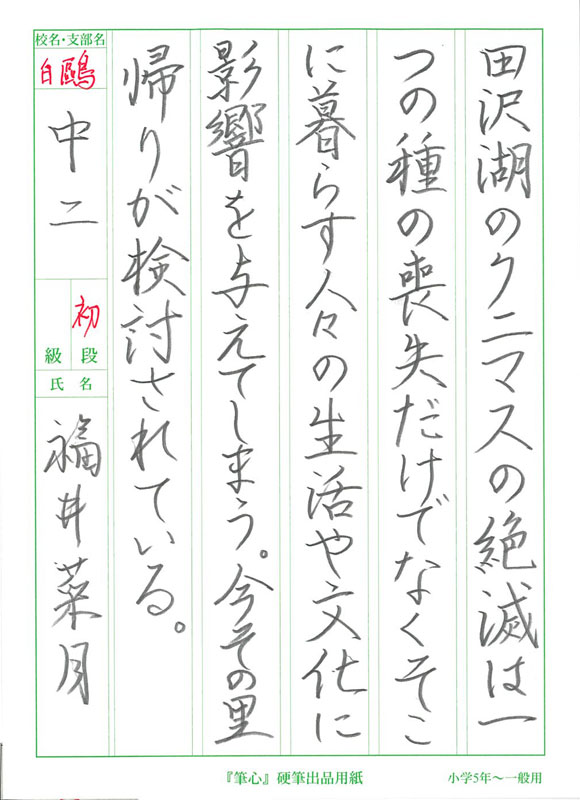 田沢湖のクニマスの絶滅は一
つの種の喪失だけでなくそこ
に暮らす人々の生活や文化に
影響を与えてしまう。今その里
帰りが検討されている。
校名・支部名
白鷗
中二
初
級 段
氏 名
福井菜月
『筆心』硬筆出品用紙
小学5年～一般用